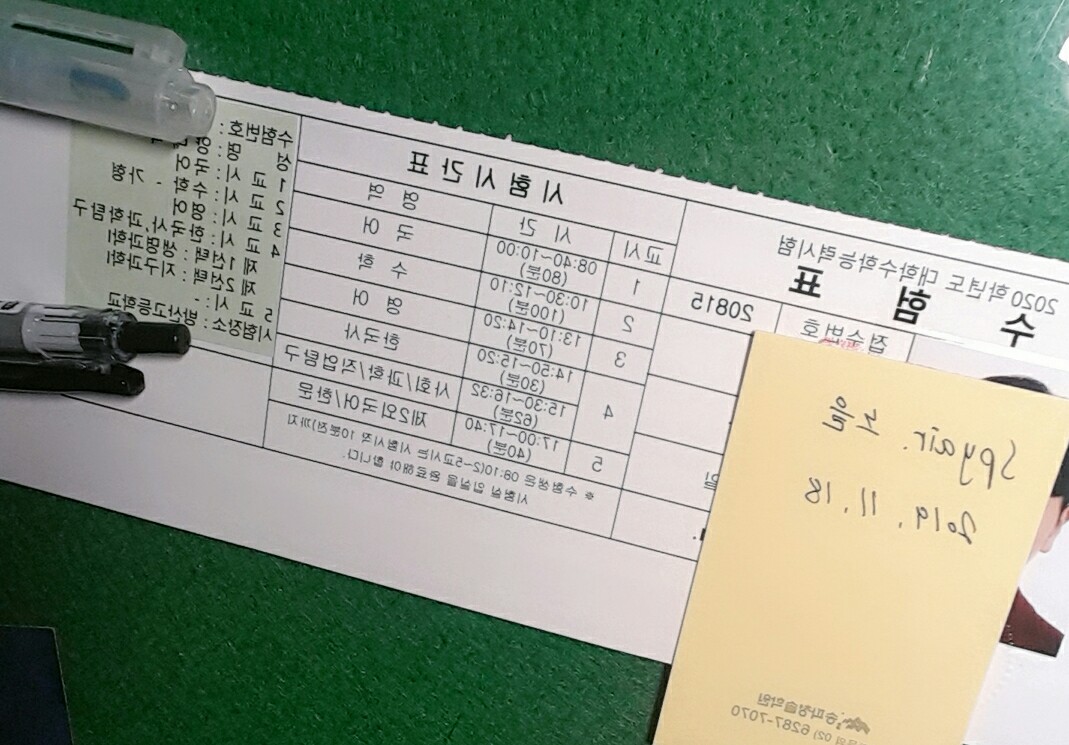 2020 학년도 대학수학능력시험
수 험 표
접수번호
20815
시 험 시 간 표
교시
시 간
영 역
1
08:40~10:00
(80분)
국 어
2
10:30~12:10
(100분)
수 학
3
13:10~14:20
(70분)
영 어
4
14:50~15:20
(30분)
한국사
15:30~16:32
(62분)
사회/과학/직업탐구
5
17:00~17:40
(40분)
제2외국어/한문
※ 수험생은 08:10(2~5교시는 시험시작 10분전)까지
시험실 입실을 완료해야 합니다.
수험번호 :
성 명 : 양
1 교 시 : 국어
2 교 시 : 수학 - 가형
3 교 시 : 영어
4 교 시 : 한국사, 과학탐구
제 1선택 : 생명과학Ⅰ
제 2선택 : 지구과학Ⅰ
5 교 시 : -
시험장소 : 방산고등학교
Spyair.
노을
2019. 11. 18
송파청솔학원
02) 6287-7070